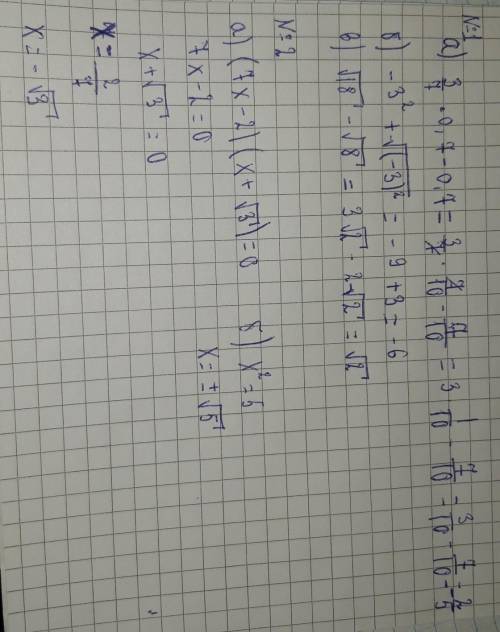 №1
а) 3/7 · 0,7 - 0,7 = 3/7 · 7/10 - 7/10 = 3 1/10 - 7/10 - 3/10 - 7/10 = 2/5
б) -3² + √(-3)² = -9 + 3 = -6
в) √18 - √8 = 3√2 - 2√2 = √2
№2
а) (7x-2)(x+√3)=0 б) x²=5
7x-2=0 x=±√5
x+√3=0
x=2/7
x=-√3